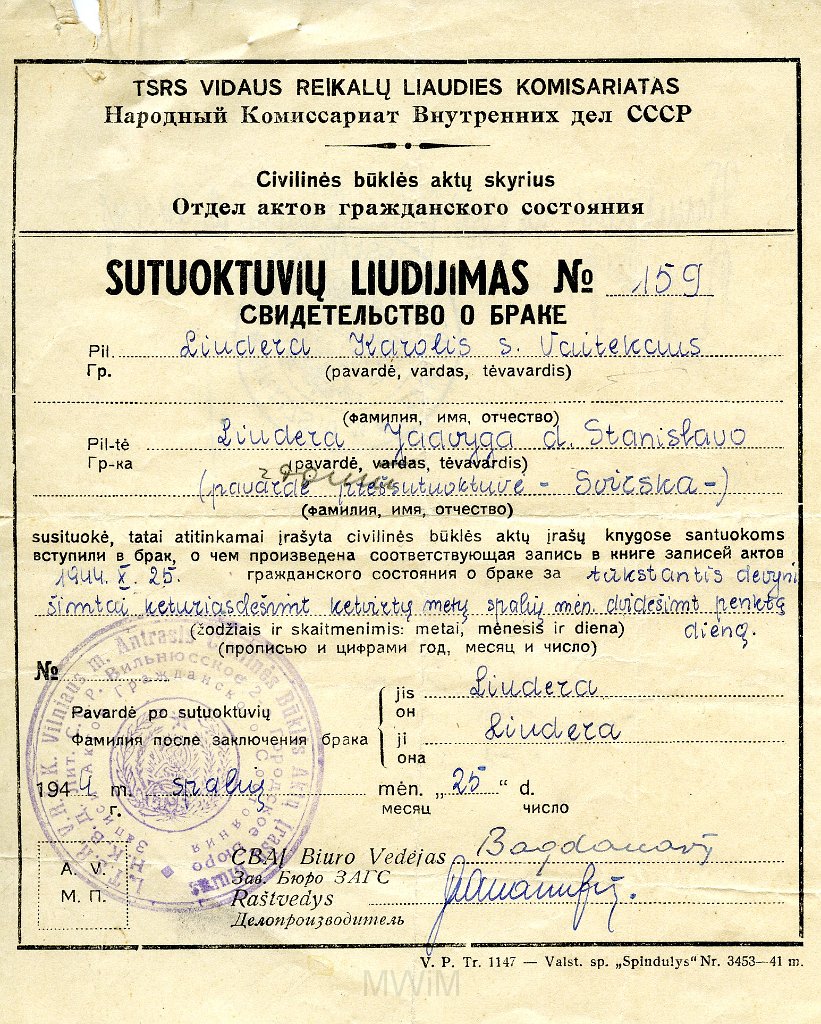 TSRS VIDAUS REIKALŲ LIAUDIES KOMISARIATAS
Народный Комиссариат Внутренних дел СССР
Civilinės būklės aktų skyrius
Отдел актов гражданского состояния
SUTUOKTUVIŲ LIUDIJIMAS № 159
СВИДЕТЕЛЬСТВО О БРАКЕ
Pil. Liudera Karolis s. Vaitekaus
Гр. (pavardė, vardas, tėvavardis)
(фамилия, имя, отчество)
Pil-tė Liudera Jadvyga d. Stanislavo
Гр-ка (pavardė, vardas, tėvavardis)
(pavardė priešsutuoktuvė - Svirska -)
(фамилия, имя, отчество)
susituokė, tatai atitinkamai įrašyta civilinės būklės aktų įrašų knygose santuokoms
вступили в брак, о чем произведена соответствующая запись в книге записей актов
1944. X. 25. гражданского состояния о браке за tūkstantis devyni
šimtai keturiasdešimt ketvirtų metų spalių mėn. dvidešimt penktą
(žodžiais ir skaitmenimis: metai, mėnesis ir diena) dieną.
(прописью и цифрами год, месяц и число)
№
Pavardė po sutuoktuvių jis Liudera
он
Фамилия после заключения брака ji Liudera
она
1944 m. spalių mėn. „25“ d.
г. месяц число
A. V.
М. П.
CBAĮ Biuro Vedėjas Bagdonavi
Зав. Бюро ЗАГС
Raštvedys
Делопроизводитель
V. P. Tr. 1147 — Valst. sp. „Spindulys“ Nr. 3453—41 m.
MWiM